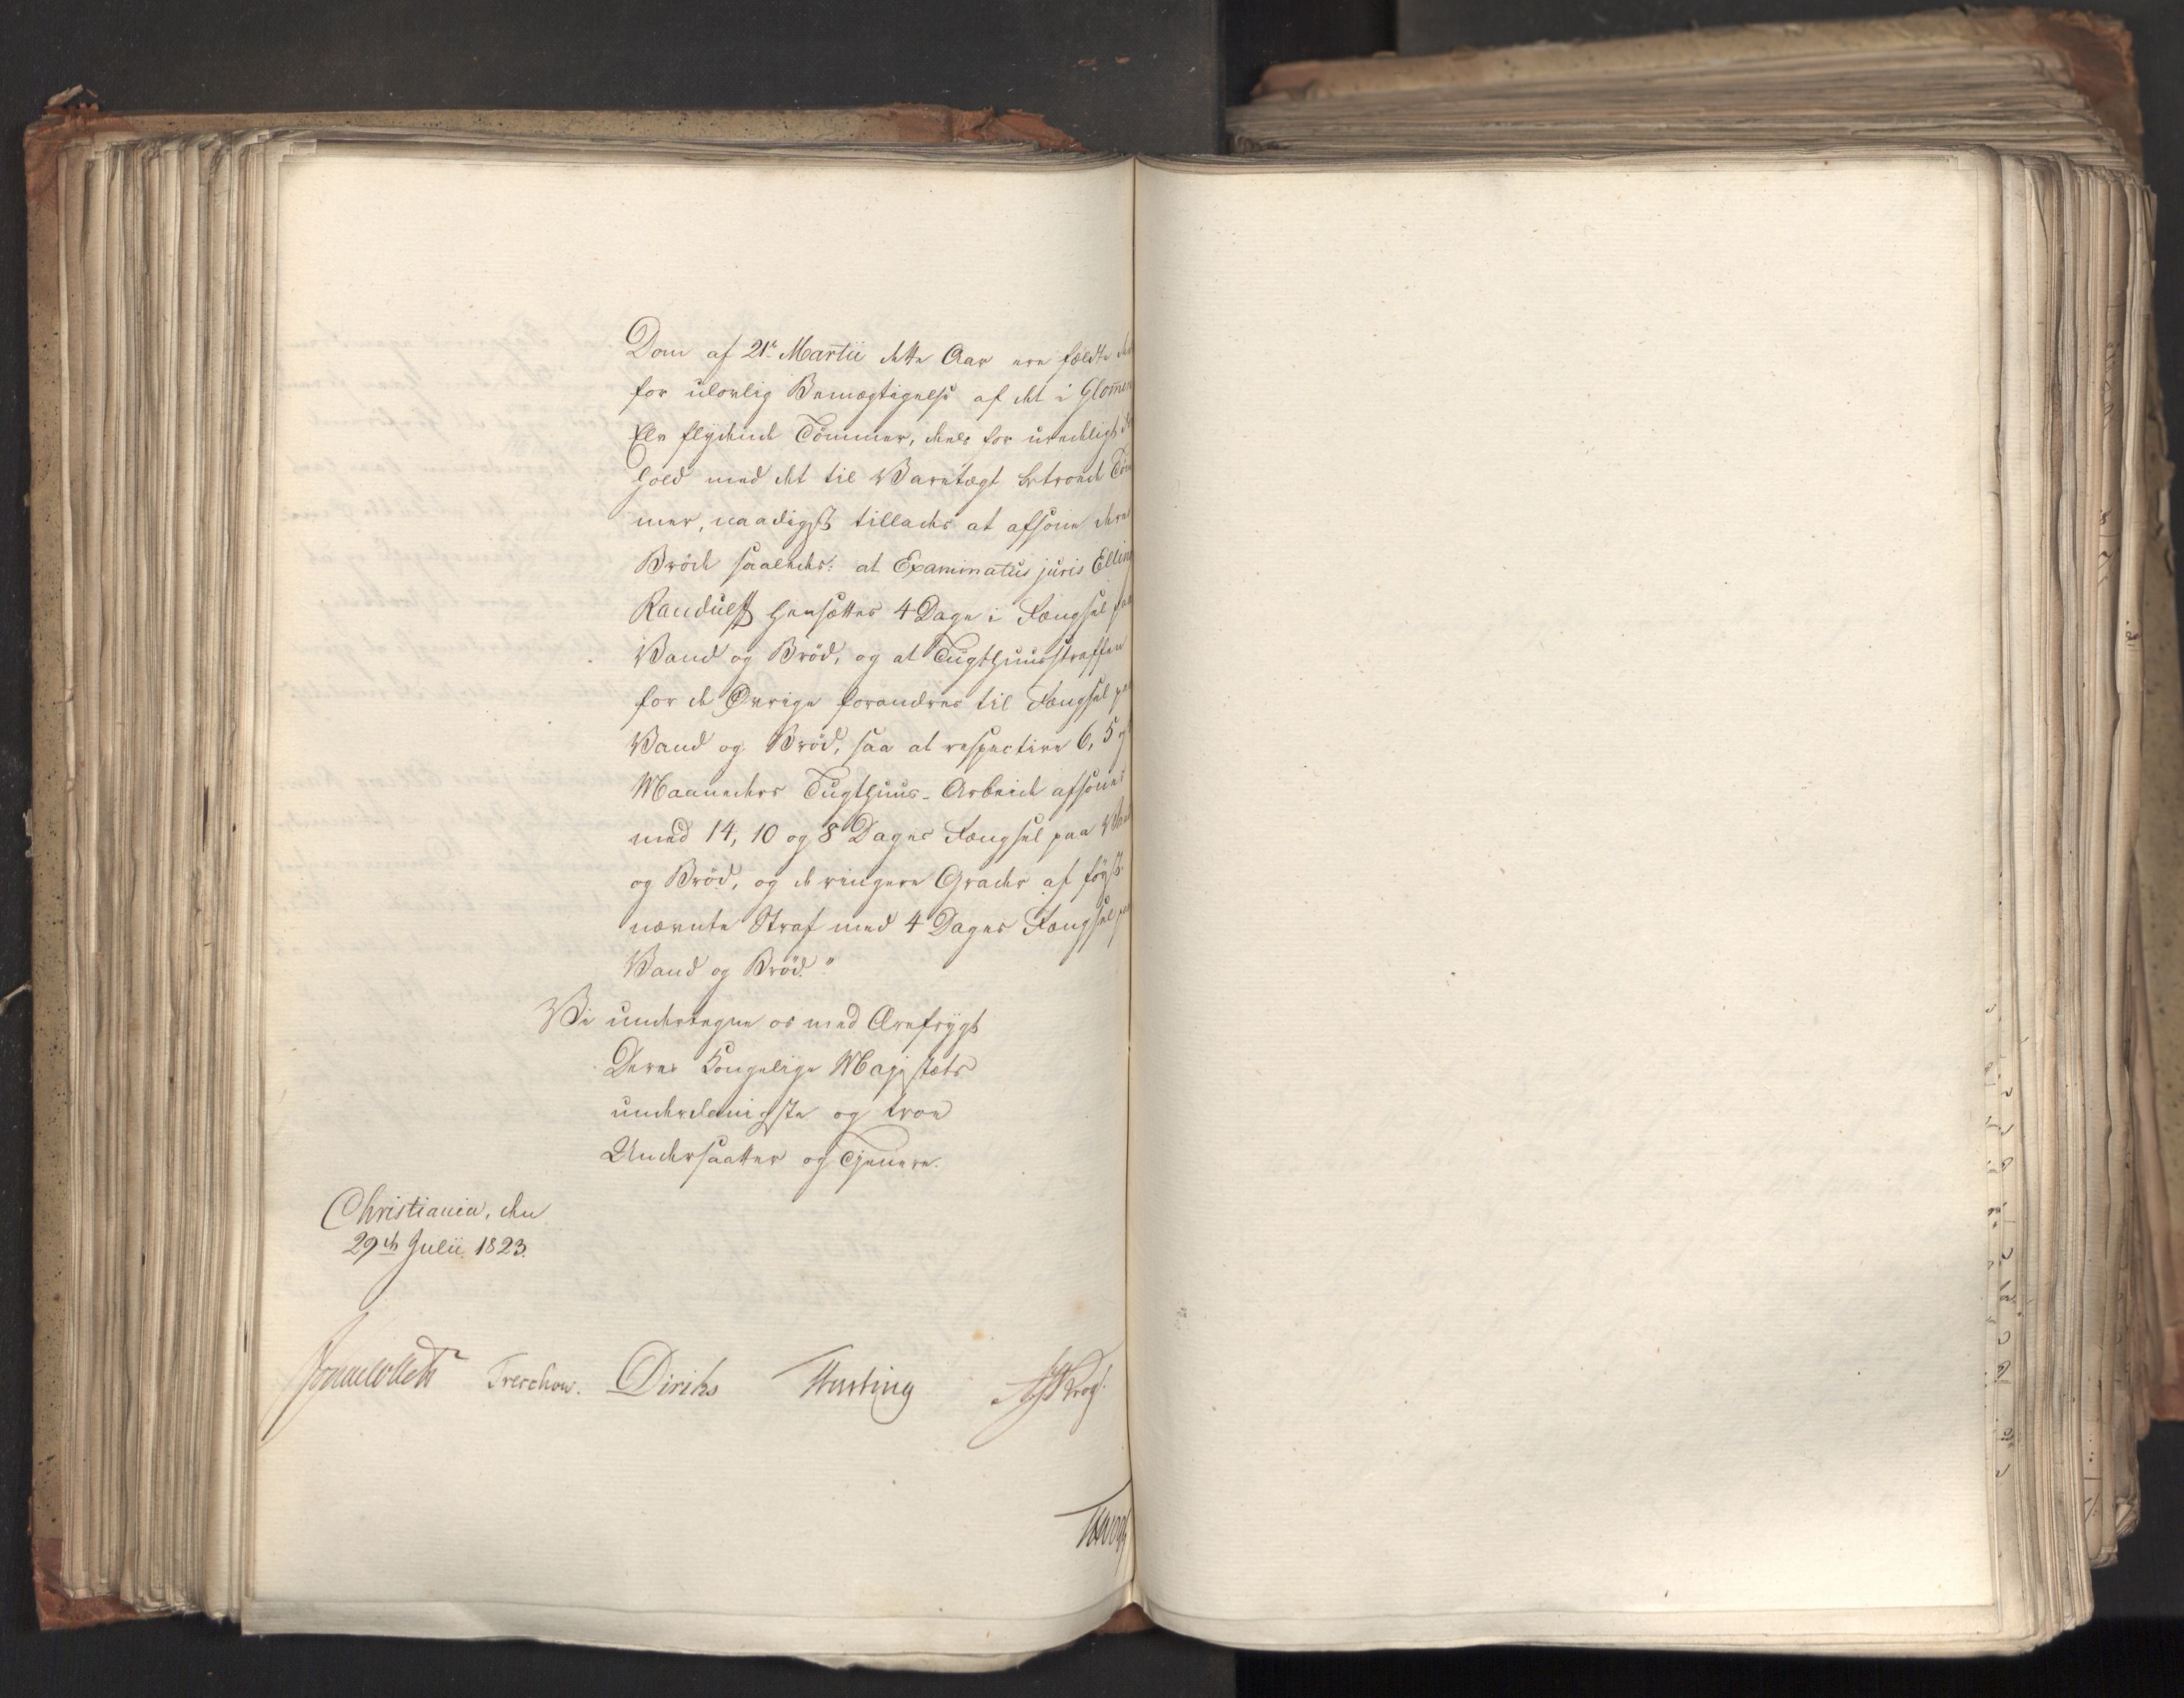 Dom af 21de Martii dette Aar ere fældte
for ulovlig Bemægtigelse af det i Glom̄en
Elv flydende Tömmer, deels for uredeligt
hold med det til Varetægt betroede Töm
mer, naadigst tillades at afsone deres
Bröde saaledes: at Examinatus juris Elling
Randulff hensættes 4 Dage i Fængsel paa
Vand og Bröd, og at Tugthuusstraffen
for de Övrige forandres til Fængsel paa
Vand og Bröd, saa at respective 6, 5 og
Maaneders Tugthuus-Arbeide afsones
med 14, 10 og 8 Dages Fængsel paa Vand
og Bröd, og de ringere Grader af föyst-
nævnte Straf med 4 Dages Fængsel paa
Vand og Bröd."
Vi undertegne os med Ærefrygt
Deres Kongelige Majestæts
underdanigste og troe
Undersaatter og Tjenere.
Christiania, den
29de Julii 1823.
Jonas Collett Treschow. Diriks Fasting Krog